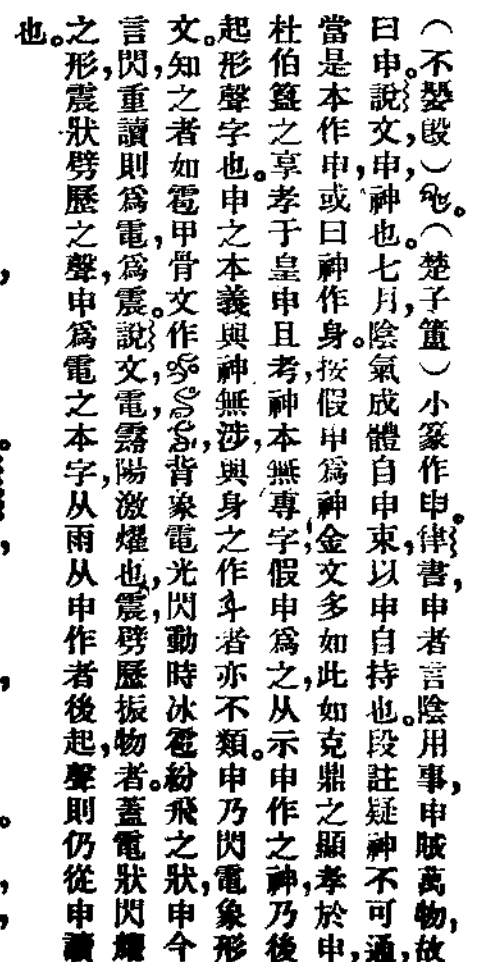 （不㛮𣪘）。（楚子簠）小篆作申。律書，申者言陰用事，申賊萬物，故
曰申。說文，申，神也。七月，陰氣成體自申束，以申自持也。段註疑神不可通，
當是本作申，或曰神作身。按假申爲神，金文多如此，如克鼎之顯孝於申，
杜伯簋之享孝于皇申且考，神本無專字，假申爲之，从示申作之神，乃後
起形聲字也。申之本義與神無涉，與身之作者亦不類。申乃閃電象形
文。知之者如雹，甲骨文作，皆象電光閃動時冰雹紛飛之狀，申今
言閃，重讀則爲電，爲震。說文，電，霒陽激燿也，震，劈歷振物者。蓋電狀閃耀
之形，震狀劈歷之聲，申爲電之本字，从雨从申作者後起，聲則仍從申讀
也。